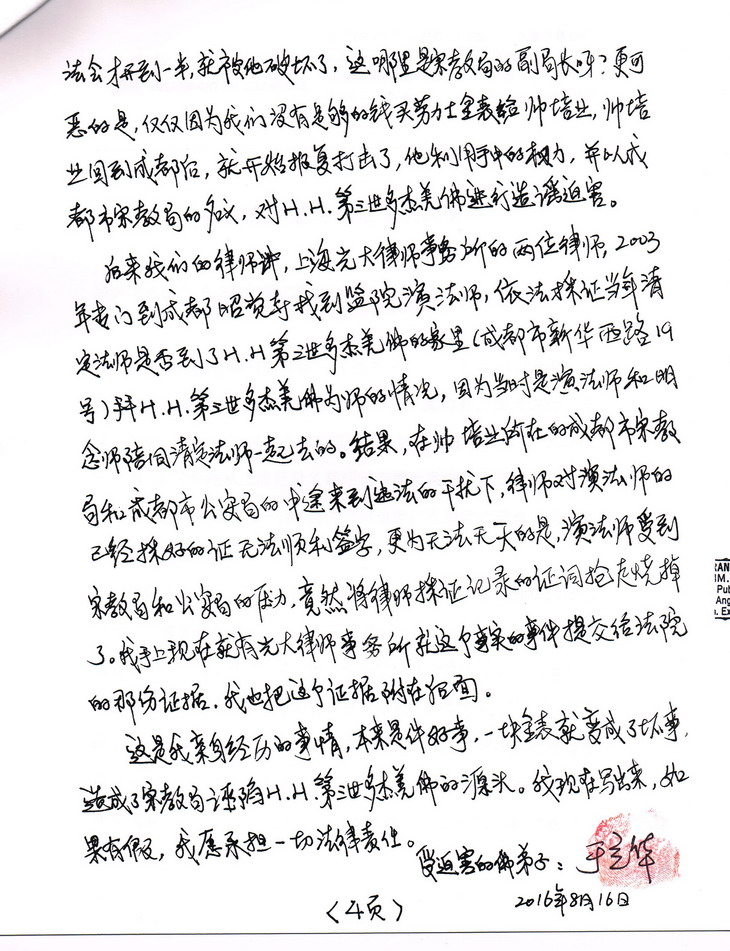 法会才开到一半,就被他破坏了,这哪里是宗教局的副局长呀?更可
恶的是,仅仅因为我们没有足够的钱买劳力士金表给帅培业,帅培
业回到成都后,就开始报复打击了,他利用手中的权力,并以成
都市宗教局的名义,对H.H.第三世多杰羌佛进行造谣迫害。
后来我们的律师讲,上海光大律师事务所的两位律师,2003
年专门到成都昭觉寺找到监院演法师,依法採证当年清
定法师是否到了H.H第三世多杰羌佛的家里(成都市新华西路19
号)拜H.H.第三世多杰羌佛为师的情况,因为当时是演法师和明
念师陪同清定法师一起去的。结果,在帅培业所在的成都市宗教
局和成都市公安局的中途来到违法的干扰下,律师对演法师的
已经採好的证无法顺利签字,更为无法无天的是,演法师受到
宗教局和公安局的压力,竟然将律师採证记录的证词抢走烧掉
了。我手上现在就有光大律师事务所就这个事实的事件提交给法院
的那份证据,我也把这个证据附在后面。
这是我亲身经历的事情,本来是件好事,一块金表就变成了坏事,
造成了宗教局诬陷H.H.第三世多杰羌佛的源头。我现在写出来,如
果有假,我愿承担一切法律责任。
受迫害的佛弟子:于立华
2016年8月16日
<4页>
RAN
IM.
Pub
Ang
. Ex